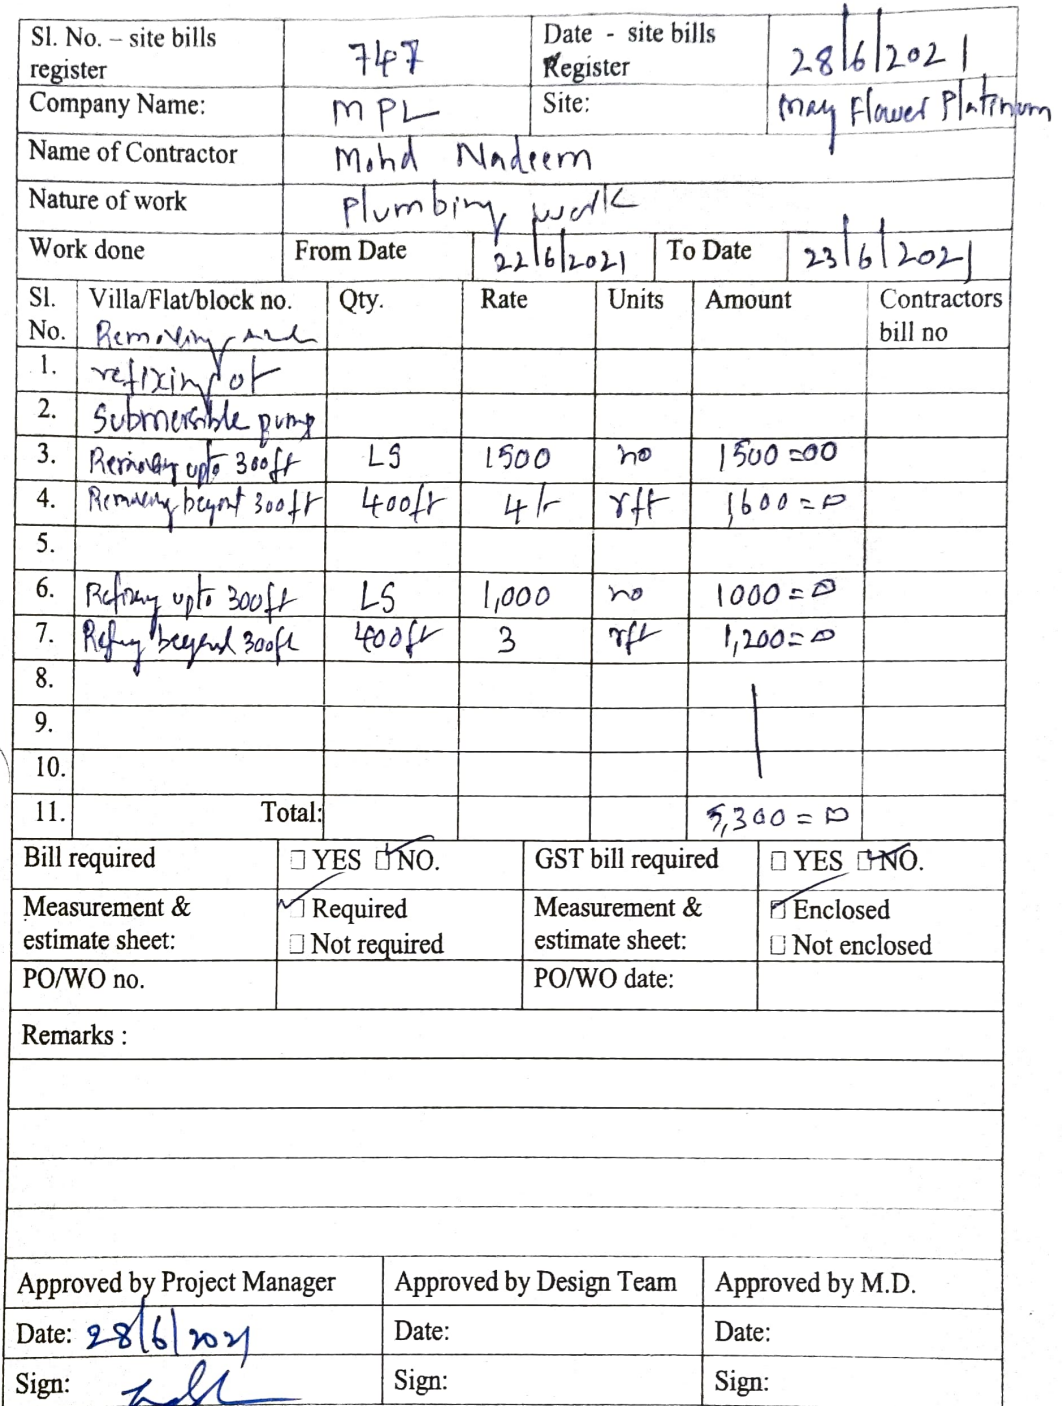 Sl. No. – site bills register 747 Date - site bills Register 28/6/2021
Company Name: MPL Site: May Flower Platinum
Name of Contractor Mohd Nadeem
Nature of work Plumbing work
Work done From Date 22/6/2021 To Date 23/6/2021
Sl. No. Villa/Flat/block no. Qty. Rate Units Amount Contractors bill no
Removing and
1. refixing of
2. Submersible pump
3. Removing upto 300ft LS 1500 no 1500=00
4. Removing beyond 300ft 400ft 4/- rft 1,600=0
5.
6. Refixing upto 300ft LS 1,000 no 1000=0
7. Refixing beyond 300ft 400ft 3 rft 1,200=0
8.
9.
10.
11. Total: 5,300=0
Bill required YES NO. GST bill required YES NO.
Measurement & estimate sheet: Required Measurement & estimate sheet: Enclosed
Not required Not enclosed
PO/WO no. PO/WO date:
Remarks :
Approved by Project Manager Approved by Design Team Approved by M.D.
Date: 28/6/2021 Date: Date:
Sign: Sign: Sign: